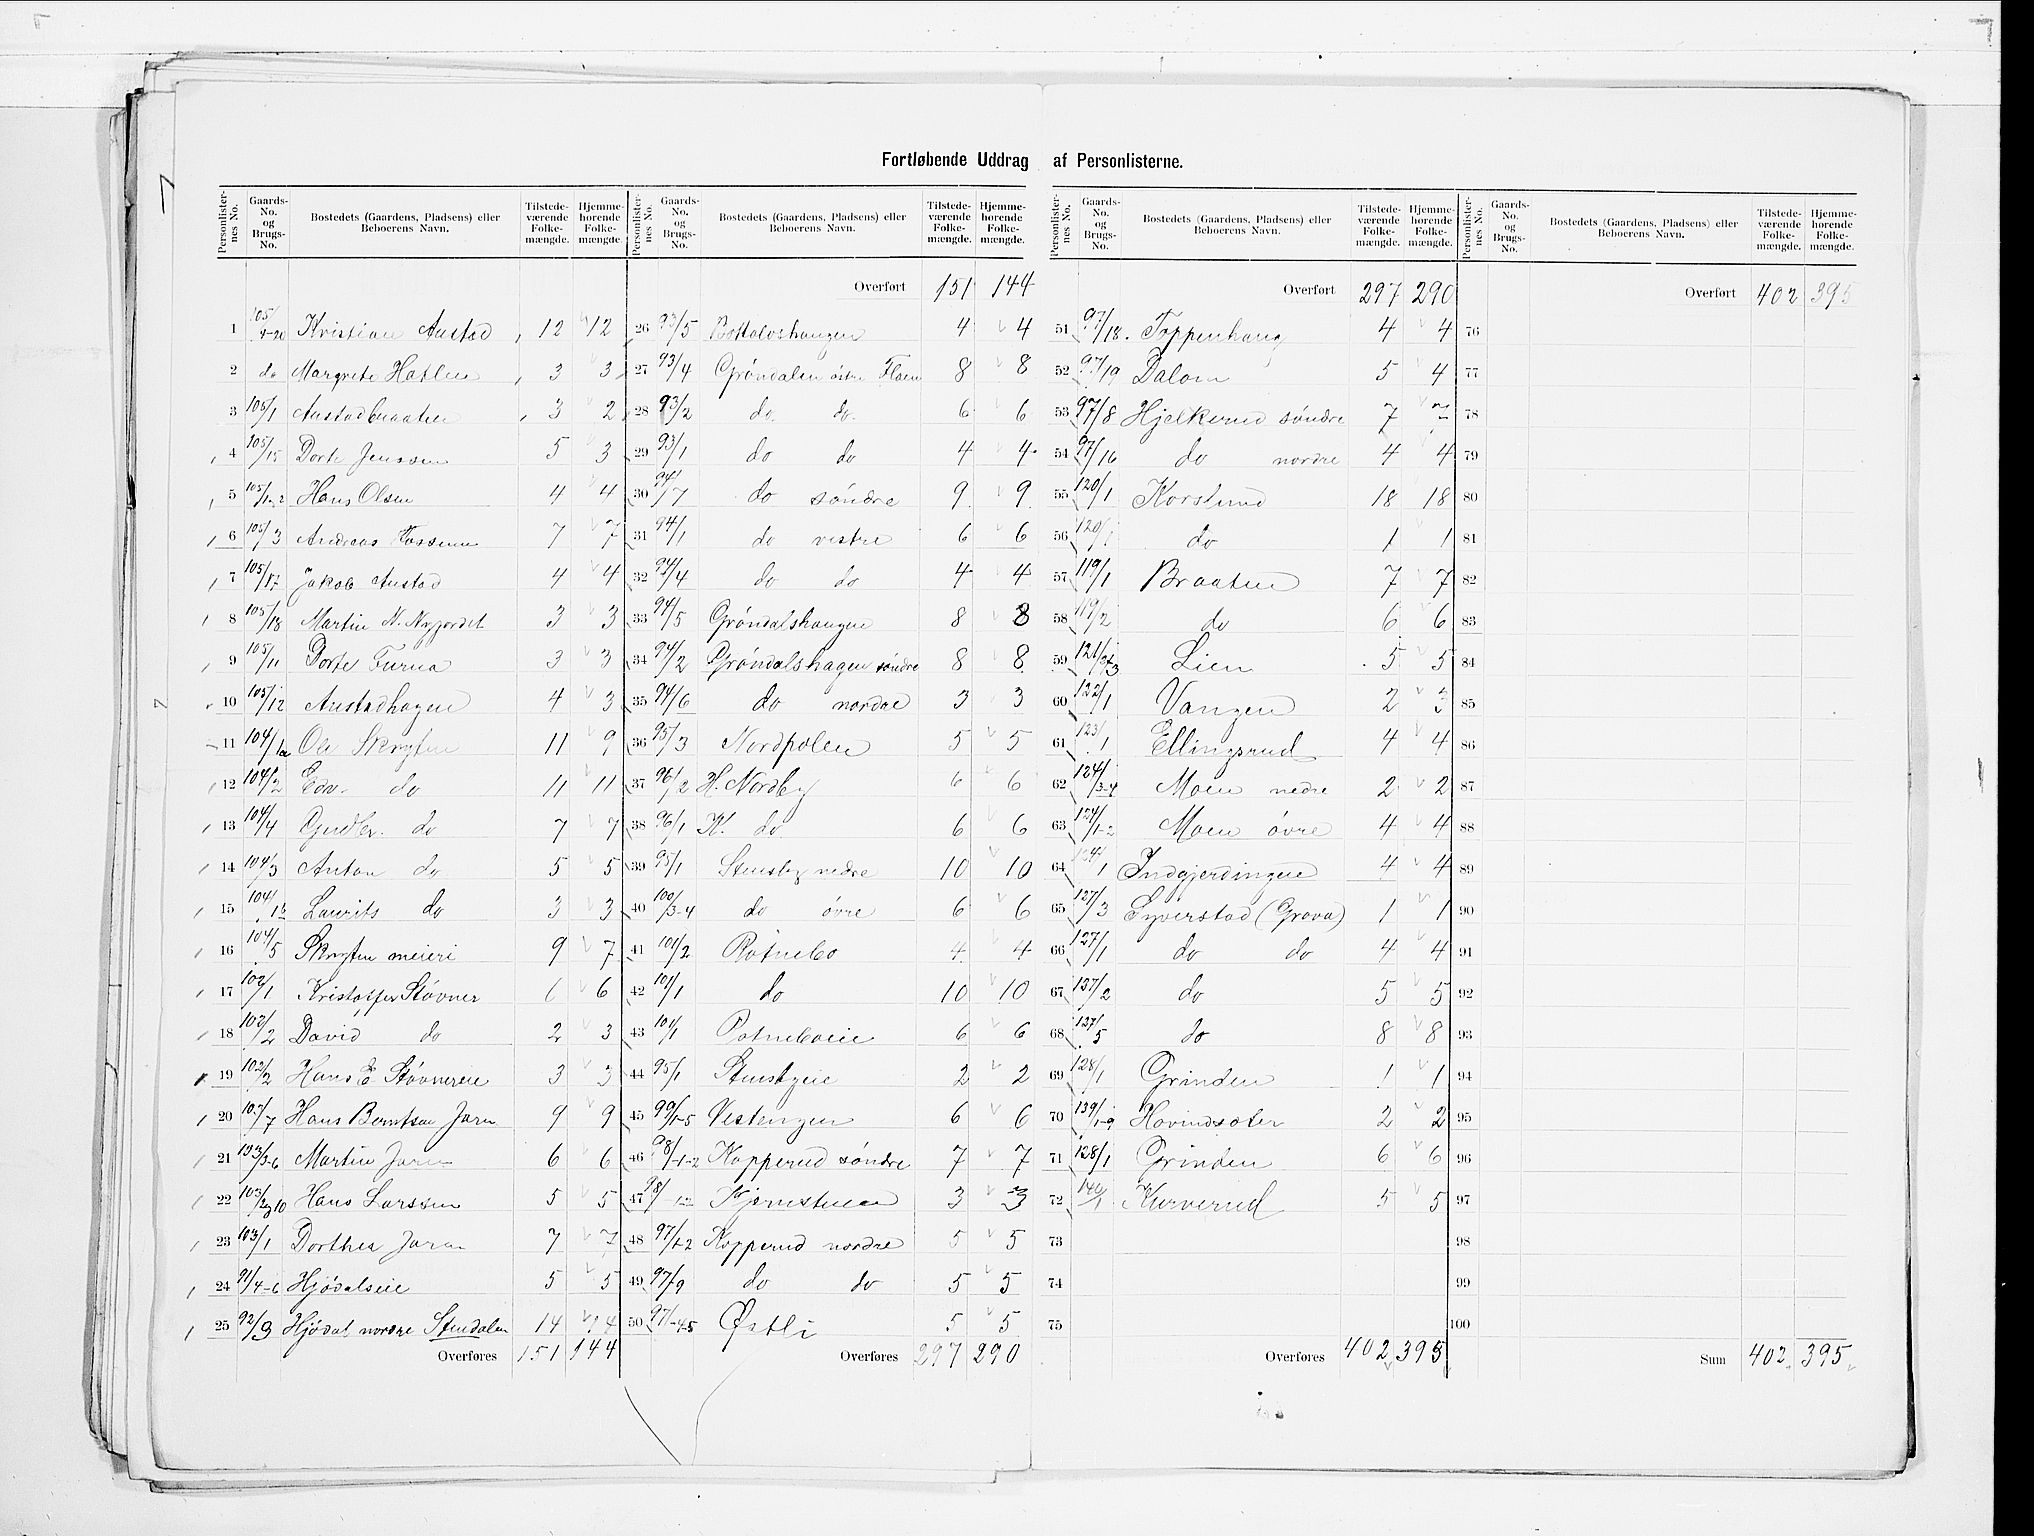 Fortløbende Uddrag af Personlisterne.
Personlister- nes No. Gaards- No. og Brugs- No. Bostedets (Gaardens, Pladsens) eller Beboerens Navn. Tilstede- værende Folke- mængde. Hjemme- hørende Folke- mængde.
1 105/ Kristian Austad 12 12
2 do Margrete Hatlen 3 3
3 105/1 Austadbraaten 3 2
4 105/15 Dorte Jenssen 5 3
5 105/1-2 Hans Olsen 4 4
6 105/3 Andreas Fossum 7 7
7 105/17 Jakob Austad 4 4
8 105/18 Martin N. Nyjordet 3 3
9 105/11 Dorte Furua 3 3
10 105/12 Austadhagen 4 3
11 104/1a Ole Skryten 11 9
12 104/2 Edv. do 11 11
13 104/4 Gudbr. do 7 7
14 104/3 Anton do 5 5
15 104/1b Laurits do 3 3
16 104/5 Skryten meieri 9 7
17 102/1 Kristoffer Støvner 6 6
18 102/2 David do 2 3
19 102/2 Hans E Støvnereie 3 3
20 107/7 Hans Berntsen Jaren 9 9
21 103/3-6 Martin Jaren 6 6
22 103/2,10 Hans Larssen 5 5
23 103/1 Dorthea Jaren 7 7
24 91/4-6 Hjødalseie 5 5
25 92/3 Hjødal nordre Stendalen 14 14
Overføres 151 144
Personlister- nes No. Gaards- No. og Brugs- No. Bostedets (Gaardens, Pladsens) eller Beboerens Navn. Tilstede- værende Folke- mængde. Hjemme- hørende Folke- mængde.
Overført 151 144
26 93/5 4 4
27 93/4 Grøndalen østre Floen 8 8
28 93/2 do do 6 6
29 93/1 do do 4 4
30 94/7 do søndre 9 9
31 94/1 do vestre 6 6
32 94/4 do do 4 4
33 94/5 Grøndalshaugen 8 8
34 94/2 Grøndalshagen søndre 8 8
35 94/6 do nordre 3 3
36 95/3 Nordpolen 5 5
37 96/2 H. Nordby 6 6
38 96/1 K. do 6 6
39 95/1 Stensby nedre 10 10
40 100/3-4 do øvre 6 6
41 101/2 Rotnebo 4 4
42 101/1 do 10 10
43 101/1 Rotneboeie 6 6
44 95/1 Stensbyeie 2 2
45 99/1-5 Vestengen 6 6
46 98/1-2 Kopperud søndre 7 7
47 98/1-2 Kjernstuen 3 3
48 97/1-2 Kopperud nordre 5 5
49 97/9 do do 5 5
50 97/4-5 Østli 5 5
Overføres 297 290
Personlister- nes No. Gaards- No. og Brugs- No. Bostedets (Gaardens, Pladsens) eller Beboerens Navn. Tilstede- værende Folke- mængde. Hjemme- hørende Folke- mængde.
Overført 297 290
51 97/18. Toppenhaug 4 4
52 97/19 Dalom 5 4
53 97/8 Hjelkerud søndre 7 7
54 97/16 do nordre 4 4
55 120/1 Korslund 18 18
56 120/1 do 1 1
57 119/1 Braaten 7 7
58 119/2 do 6 6
59 121/ Lien 5 5
60 122/1 Vangen 2 3
61 123/1 Ellingsrud 4 4
62 124/3-4 Moen nedre 2 2
63 124/1-2 Moen øvre 4 4
64 Indgjerdingen 4 4
65 127/3 Syverstad (Grova) 1 1
66 127/1 do do 4 4
67 137/2 do 5 5
68 137/5 do 8 8
69 128/1 Grinden 1 1
70 139/1-9 Hovindsæter 2 2
71 128/1 Grinden 6 6
72 140/1 Kurverud 5 5
73
74
75
Overføres 402 395
Personlister- nes No. Gaards- No. og Brugs- No. Bostedets (Gaardens, Pladsens) eller Beboerens Navn. Tilstede- værende Folke- mængde. Hjemme- hørende Folke- mængde.
Overført 402 395
76
77
78
79
80
81
82
83
84
85
86
87
88
89
90
91
92
93
94
95
96
97
98
99
100
Sum 402 395